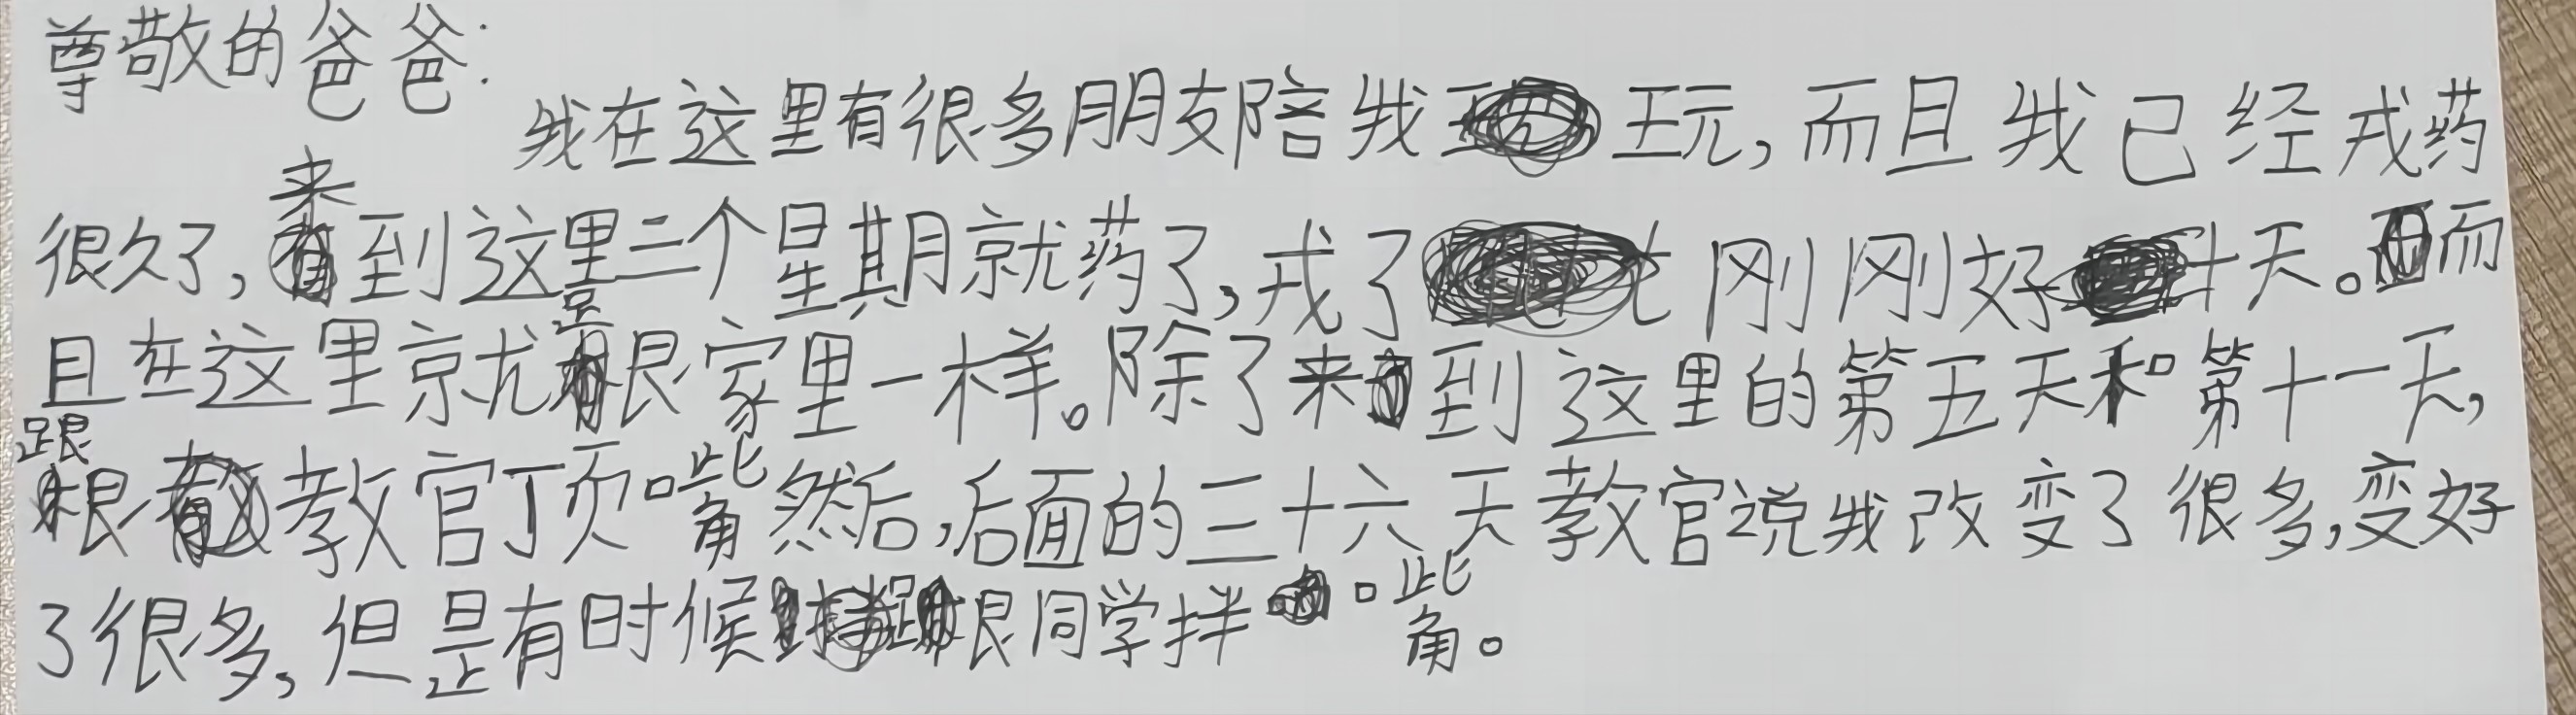 尊敬的爸爸:
我在这里有很多朋友陪我玩,而且我已经戎药
很久了,来到这里二个星期就药了,戎了刚刚好十天。而
且在这里就跟家里一样。除了来到这里的第五天和第十一天,
跟教官顶嘴然后,后面的三十六天教官说我改变了很多,变好
了很多,但是有时候跟同学拌嘴。